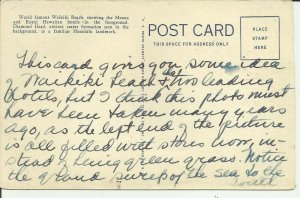 World famous Waikiki Beach, showing the Moana
and Royal Hawaiian hotels in the foreground.
Diamond Head, extinct crater formation seen in the
background, is a familiar Honolulu landmark.
POST CARD
THIS SPACE FOR ADDRESS ONLY
PLACE
STAMP
HERE
This card gives you some idea
of Waikiki beach & the two leading
hotels, but I think this photo must
have been taken many years
ago, as the left end of the picture
is all filled with stores now, in-
stead of being green grass. Notice
the grand surf of the sea to the
south